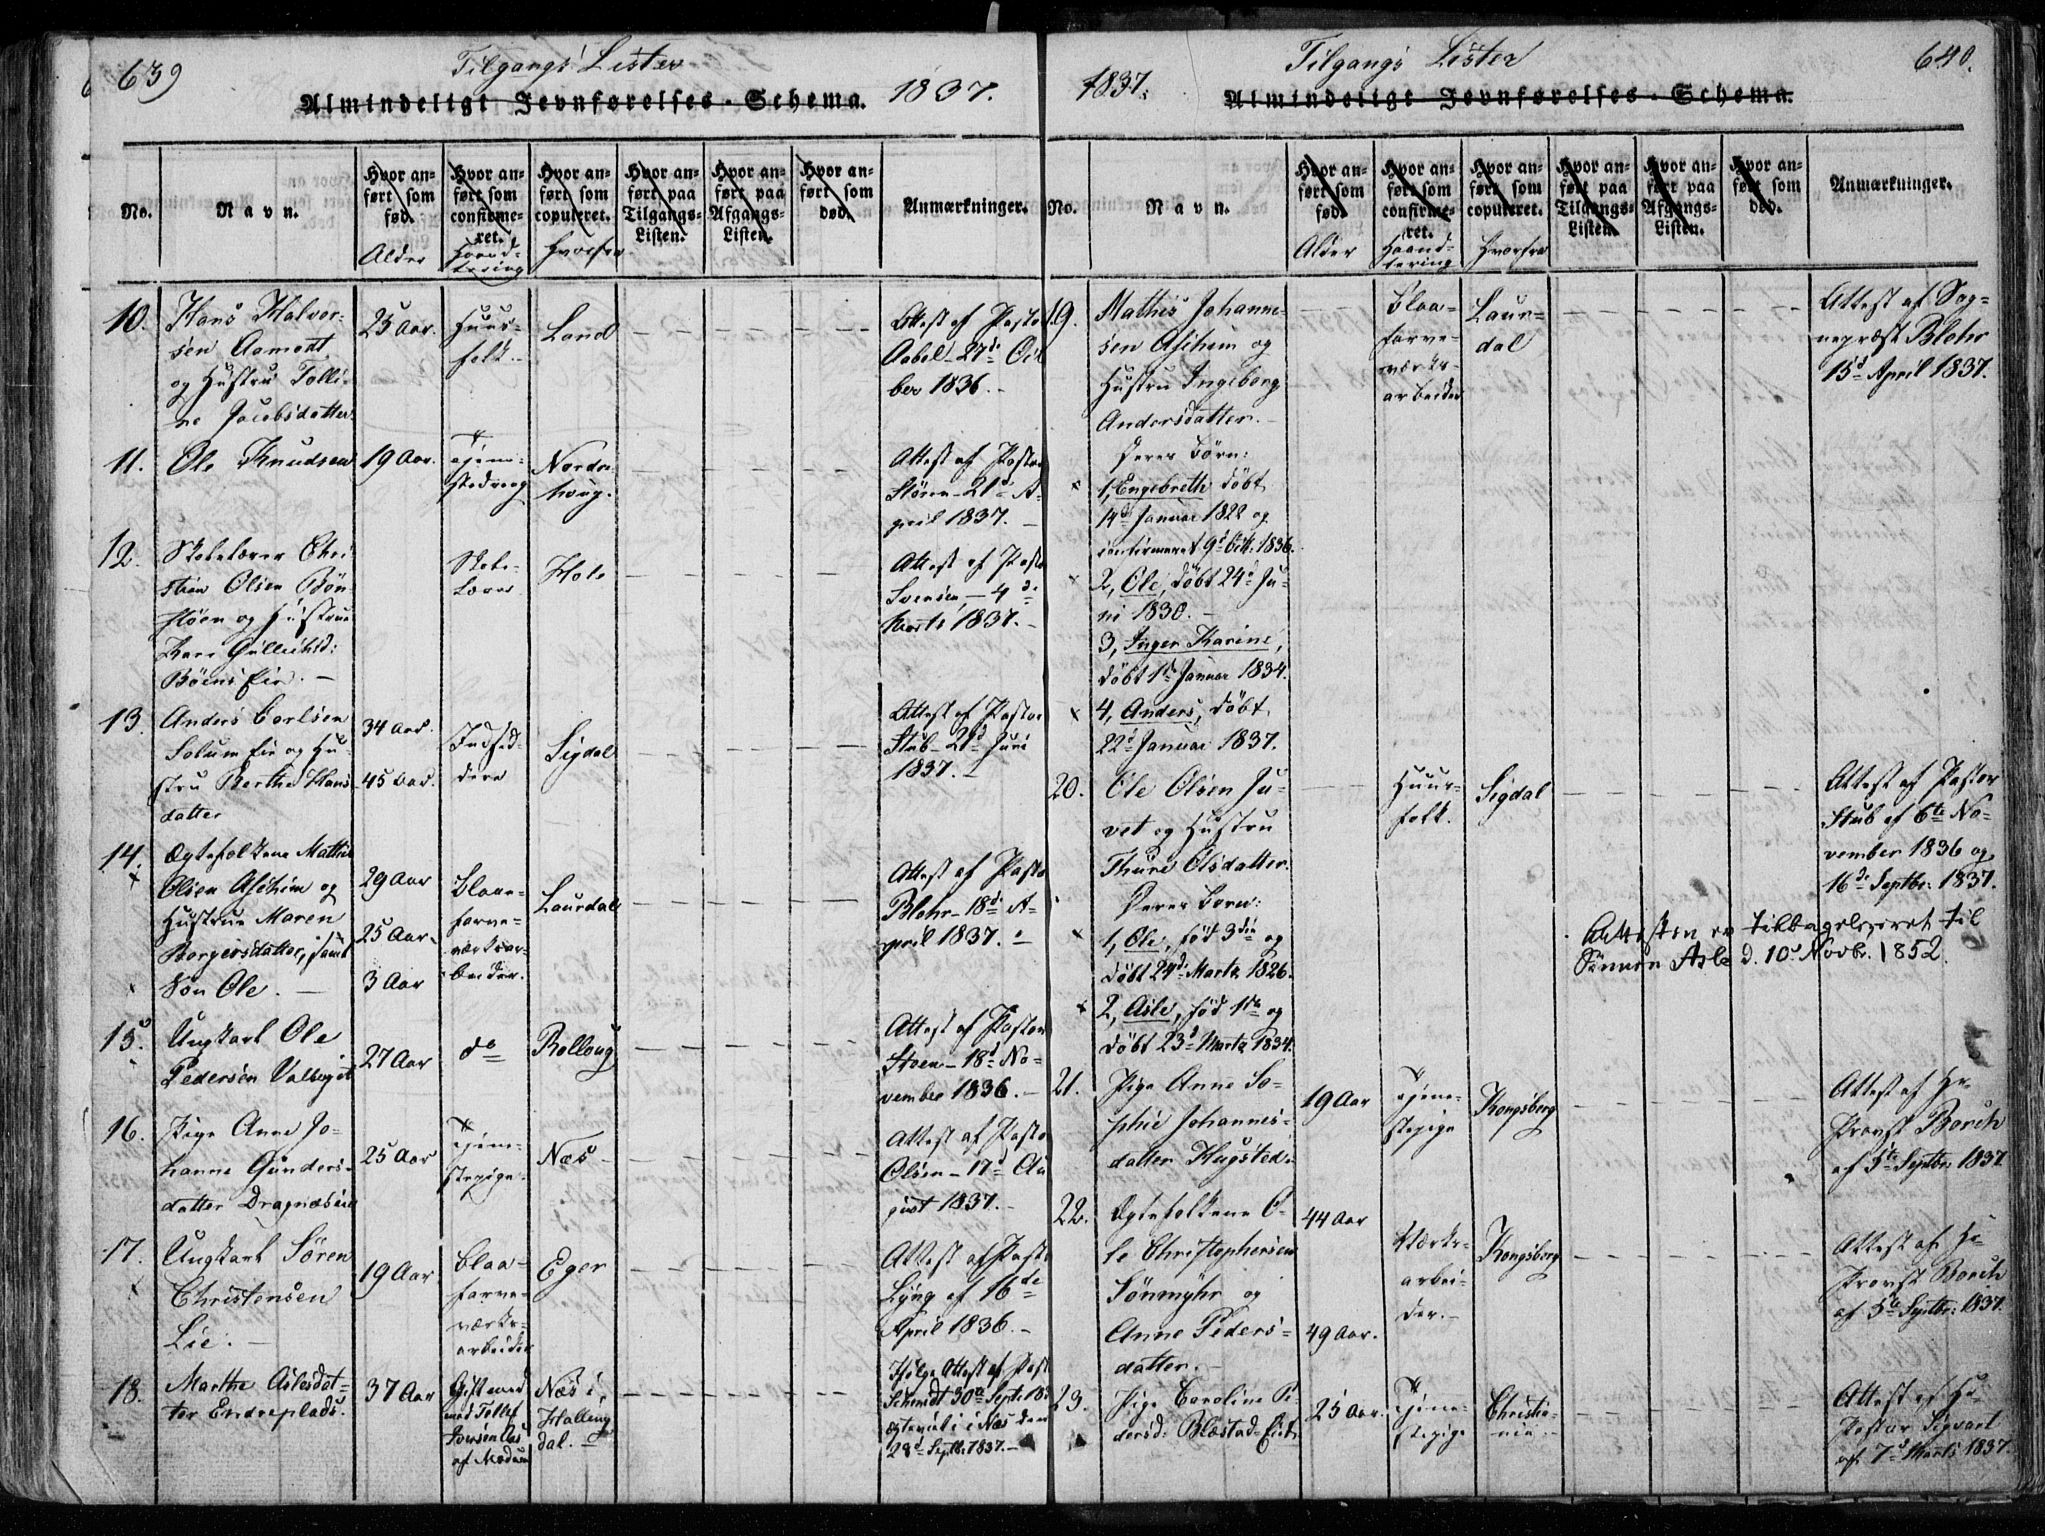 639
Tilgangs Lister
Almindeligt Jevnførelses-Schema.
1837.
No.
Navn.
Hvor anført som fød.
Alder
Hvor anført som confirmeret.
Haandtering
Hvor anført som copuleret.
Hvorfra
Hvor anført paa Tilgangs-Listen.
Hvor anført paa Afgangs-Listen.
Hvor anført som død.
Anmærkninger.
10.
Hans Halvor-
sen Aamodt
og Hustru Tolli-
ne Jacobsdatter
25 Aar.
Huus-
folk.
Land
Attest af Pastor
Aabel 27de Oct
ber 1836.
11.
Ole Knudsen
19 Aar.
Tjene-
stedreng
Nordre-
houg.
Attest af Pastor
Støren 21de A-
pril 1837.
12.
Skolelærer Chri-
stian Olsen Bøn-
støen og Hustrue
Kari
Bøens Eie.
Skole-
Lærer
Hole
Attest af Pastor
4de
Marts 1837.
13.
Anders Carlsen
Solum Eie og Hu-
stru Berthe Hans-
datter
34 Aar.
45 Aar.
Indsid-
dere
Sigdal
Attest af Pastor
Stub 21d Juni
1837.
14.
Ægtefolkene Mathis
Olsen Aseheim og
Hustrue Maren
Borgersdatter, samt
Søn Ole.
29 Aar
25 Aar
3 Aar
Blaa-
farve-
værksar-
beider.
Laurdal
Attest af Pastor
Blohr 18de A-
pril 1837.
15.
Ungkarl Ole
Pedersen
27 Aar
do
Rolloug
Attest af Pastor
Steen 18d No-
vember 1836.
16.
Pige Anne Jo-
hanne Gunders-
datter Dragnæseie
25 Aar
Tjene-
stepige.
Næs
Attest af Pastor
Olsen 17d Au
gust 1837.
17.
Ungkarl Søren
Christensen
Lie.
19 Aar
Blaa-
farve-
værks-
arbeider
Eger
Attest af Pastor
Lyng af 16de
April 1836.
18.
Marthe Aslesdat-
ter Endreplads.
37 Aar
Gift
med Tollef
af Modum
Næs i
Halling-
dal.
Ifølge Attest af Past
Schmidt 30te Septr 183
i Næs den
28d Septbr 1837.
1837.
Tilgangs Lister
640.
Almindeligt Jevnførelses-Schema.
No.
Navn.
Hvor anført som fød.
Alder
Hvor anført som confirmeret.
Haandtering
Hvor anført som copuleret.
Hvorfra
Hvor anført paa Tilgangs-Listen.
Hvor anført paa Afgangs-Listen.
Hvor anført som død.
Anmærkninger.
19.
Mathis Johanne-
sen Aseheim og
Hustru Ingeborg
Andersdatter.
Deres Børn:
1, Engebreth døbt
14d Januar 1822 og
confirmeret 9d Oct. 1836.
2, Ole, døbt 24d Ju-
ni 1830.
3, Inger Karine,
døbt 1d Januar 1834.
4, Anders, døbt
22d Januar 1837.
Blaa-
farve-
værks-
arbeider
Laur-
dal
Attest af Sog-
nepræst Blohr
15d April 1837.
20.
Ole Olsen Ju-
vet og Hustru
Thure Olsdatter.
Deres Børn:
1, Ole, fød 3die og
døbt 24d Marts 1826.
2, Asle, fød 1ste og
døbt 23d Marts 1834.
Huus-
folk.
Sigdal
Attest af Pastor
Stub af 6te No-
vember 1836 og
16de Septbr. 1837.
Attesten er tilbageleveret til
Sønnen Asle d. 10d Novbr. 1852.
21.
Pige Anne So-
phie Johannes-
datter Hugsted
19 Aar
Tjene-
stepige
Kongsberg
Attest af Hr
Provst Borch
af 5te Septbr. 1837
22.
Ægtefolkene O-
le Christophersen
Sønmyhr og
Anne Peders-
datter.
44 Aar
49 Aar.
Værks-
arbei-
der.
Kongsberg
Attest af Hr
Provst Borch
af 5te Septbr. 1837.
23.
Pige Caroline Pe-
dersd. Blæstad-Eiet
25 Aar.
Tjene-
stepige
Christia-
nia.
Attest af Hr
Pastor Sigvart
af 7d Marts 1837.